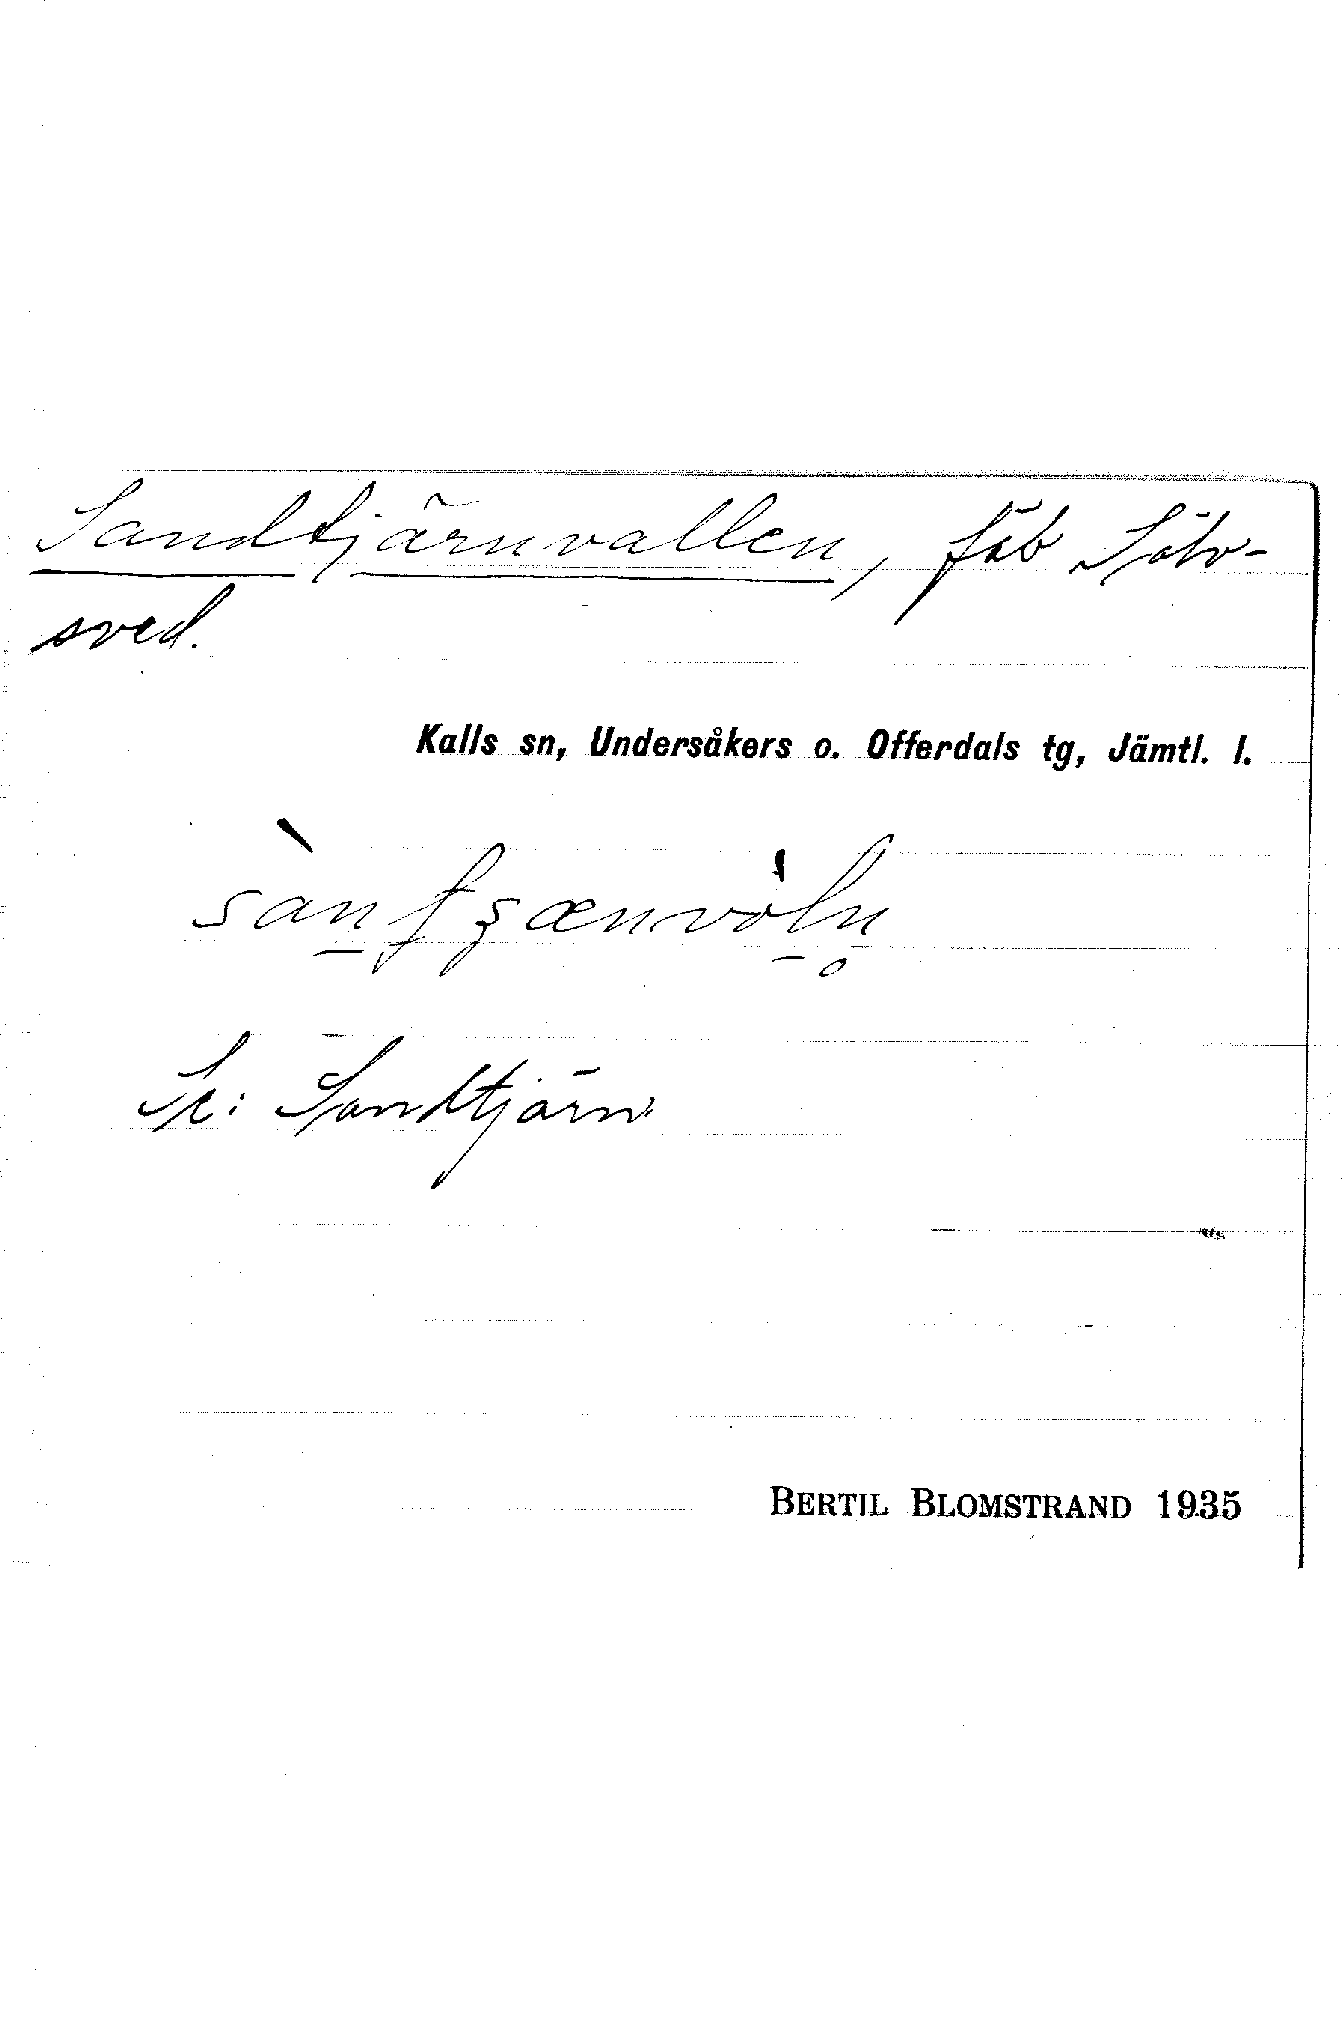 Sandtjärnvallen, fäb Sölv-
sved.
Kalls sn, Undersåkers o. Offerdals tg, Jämtl. l.
Se: Sandtjärn
BERTIL BLOMSTRAND 1935